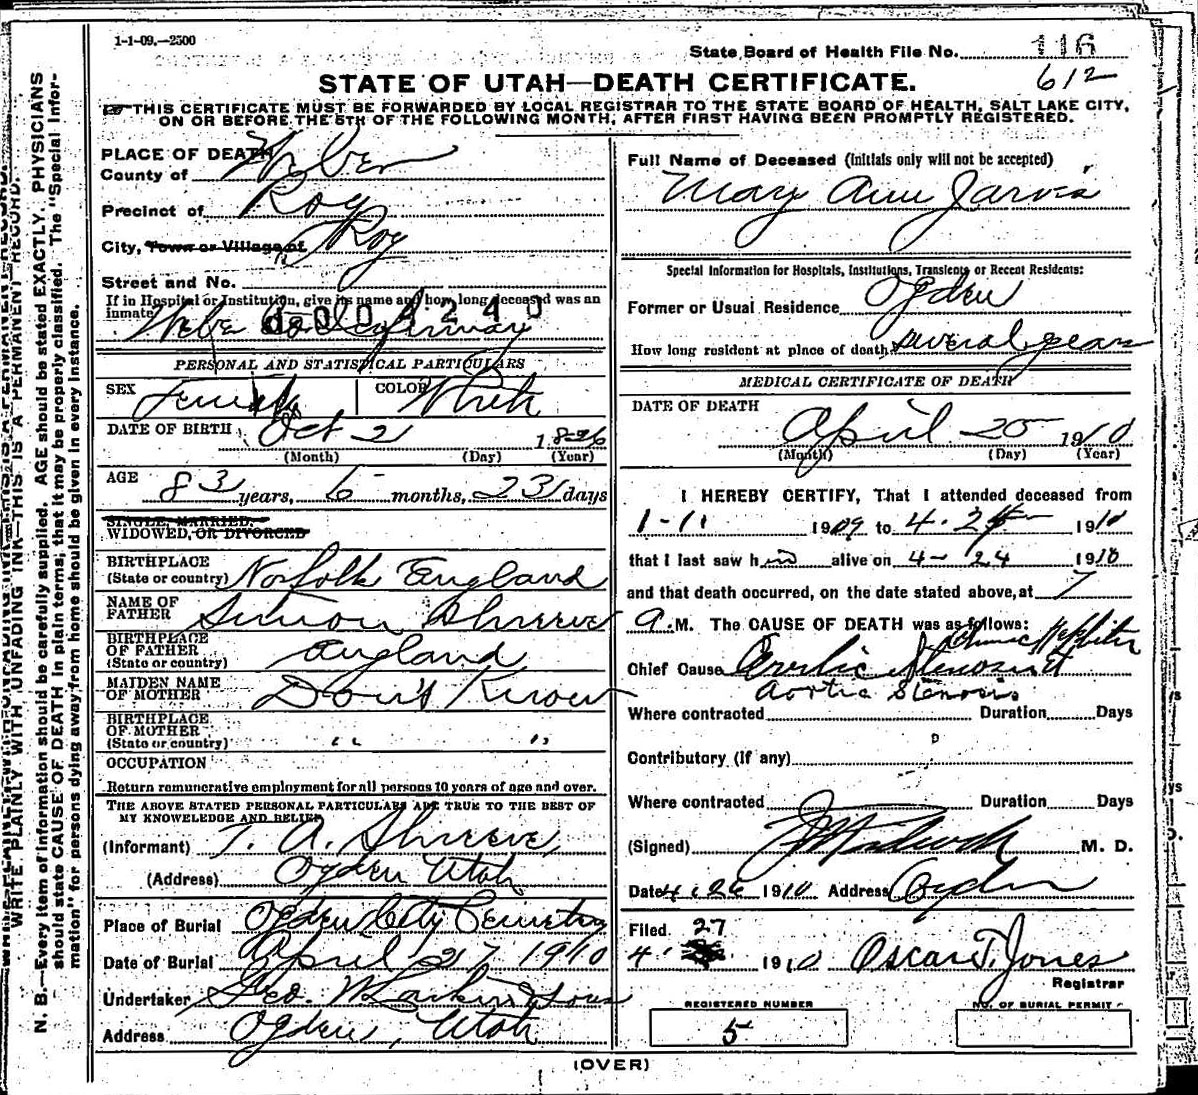 1-1-09.—2500
State Board of Health File No. 116
612
STATE OF UTAH—DEATH CERTIFICATE.
THIS CERTIFICATE MUST BE FORWARDED BY LOCAL REGISTRAR TO THE STATE BOARD OF HEALTH, SALT LAKE CITY,
ON OR BEFORE THE 5TH OF THE FOLLOWING MONTH, AFTER FIRST HAVING BEEN PROMPTLY REGISTERED.
WRITE PLAINLY WITH UNFADING INK—THIS IS A PERMANENT RECORD.
N. B.—Every item of information should be carefully supplied. AGE should be stated EXACTLY. PHYSICIANS
should state CAUSE OF DEATH in plain terms, that it may be properly classified. The "Special Infor-
mation" for persons dying away from home should be given in every instance.
PLACE OF DEATH
County of Weber
Precinct of Roy
City, Town or Village of Roy
Street and No.
If in Hospital or Institution, give its name and how long deceased was an
inmate
PERSONAL AND STATISTICAL PARTICULARS
SEX Female COLOR White
DATE OF BIRTH Oct 2 1826
(Month) (Day) (Year)
AGE 83 years, 6 months, 23 days
SINGLE, MARRIED,
WIDOWED, OR DIVORCED
BIRTHPLACE
(State or country) Norfolk England
NAME OF
FATHER Simon Shreeve
BIRTHPLACE
OF FATHER
(State or country) England
MAIDEN NAME
OF MOTHER Don't Know
BIRTHPLACE
OF MOTHER
(State or country) " "
OCCUPATION
Return remunerative employment for all persons 10 years of age and over.
THE ABOVE STATED PERSONAL PARTICULARS ARE TRUE TO THE BEST OF
MY KNOWLEDGE AND BELIEF
(Informant) T. A. Shreeve
(Address) Ogden Utah
Place of Burial Ogden City Cemetry
Date of Burial April 27 1910
Undertaker Geo W Larkin & Sons
Address Ogden, Utah
Full Name of Deceased (Initials only will not be accepted)
Mary Ann Jarvis
Special Information for Hospitals, Institutions, Transients or Recent Residents:
Former or Usual Residence Ogden
How long resident at place of death several years
MEDICAL CERTIFICATE OF DEATH
DATE OF DEATH
April 25 1910
(Month) (Day) (Year)
I HEREBY CERTIFY, That I attended deceased from
1-11 1909 to 4-24 1910
that I last saw h alive on 4-24 1910
and that death occurred, on the date stated above, at 7
a.M. The CAUSE OF DEATH was as follows:
Chief Cause Aortic Stenosis
Aortic Stenosis
Where contracted Duration Days
Contributory (if any)
Where contracted Duration Days
(Signed) M. D.
Date 4.26 1910 Address Ogden
Filed 27
4. 1910 Oscar T. Jones
Registrar
REGISTERED NUMBER NO. OF BURIAL PERMIT
5
(OVER)